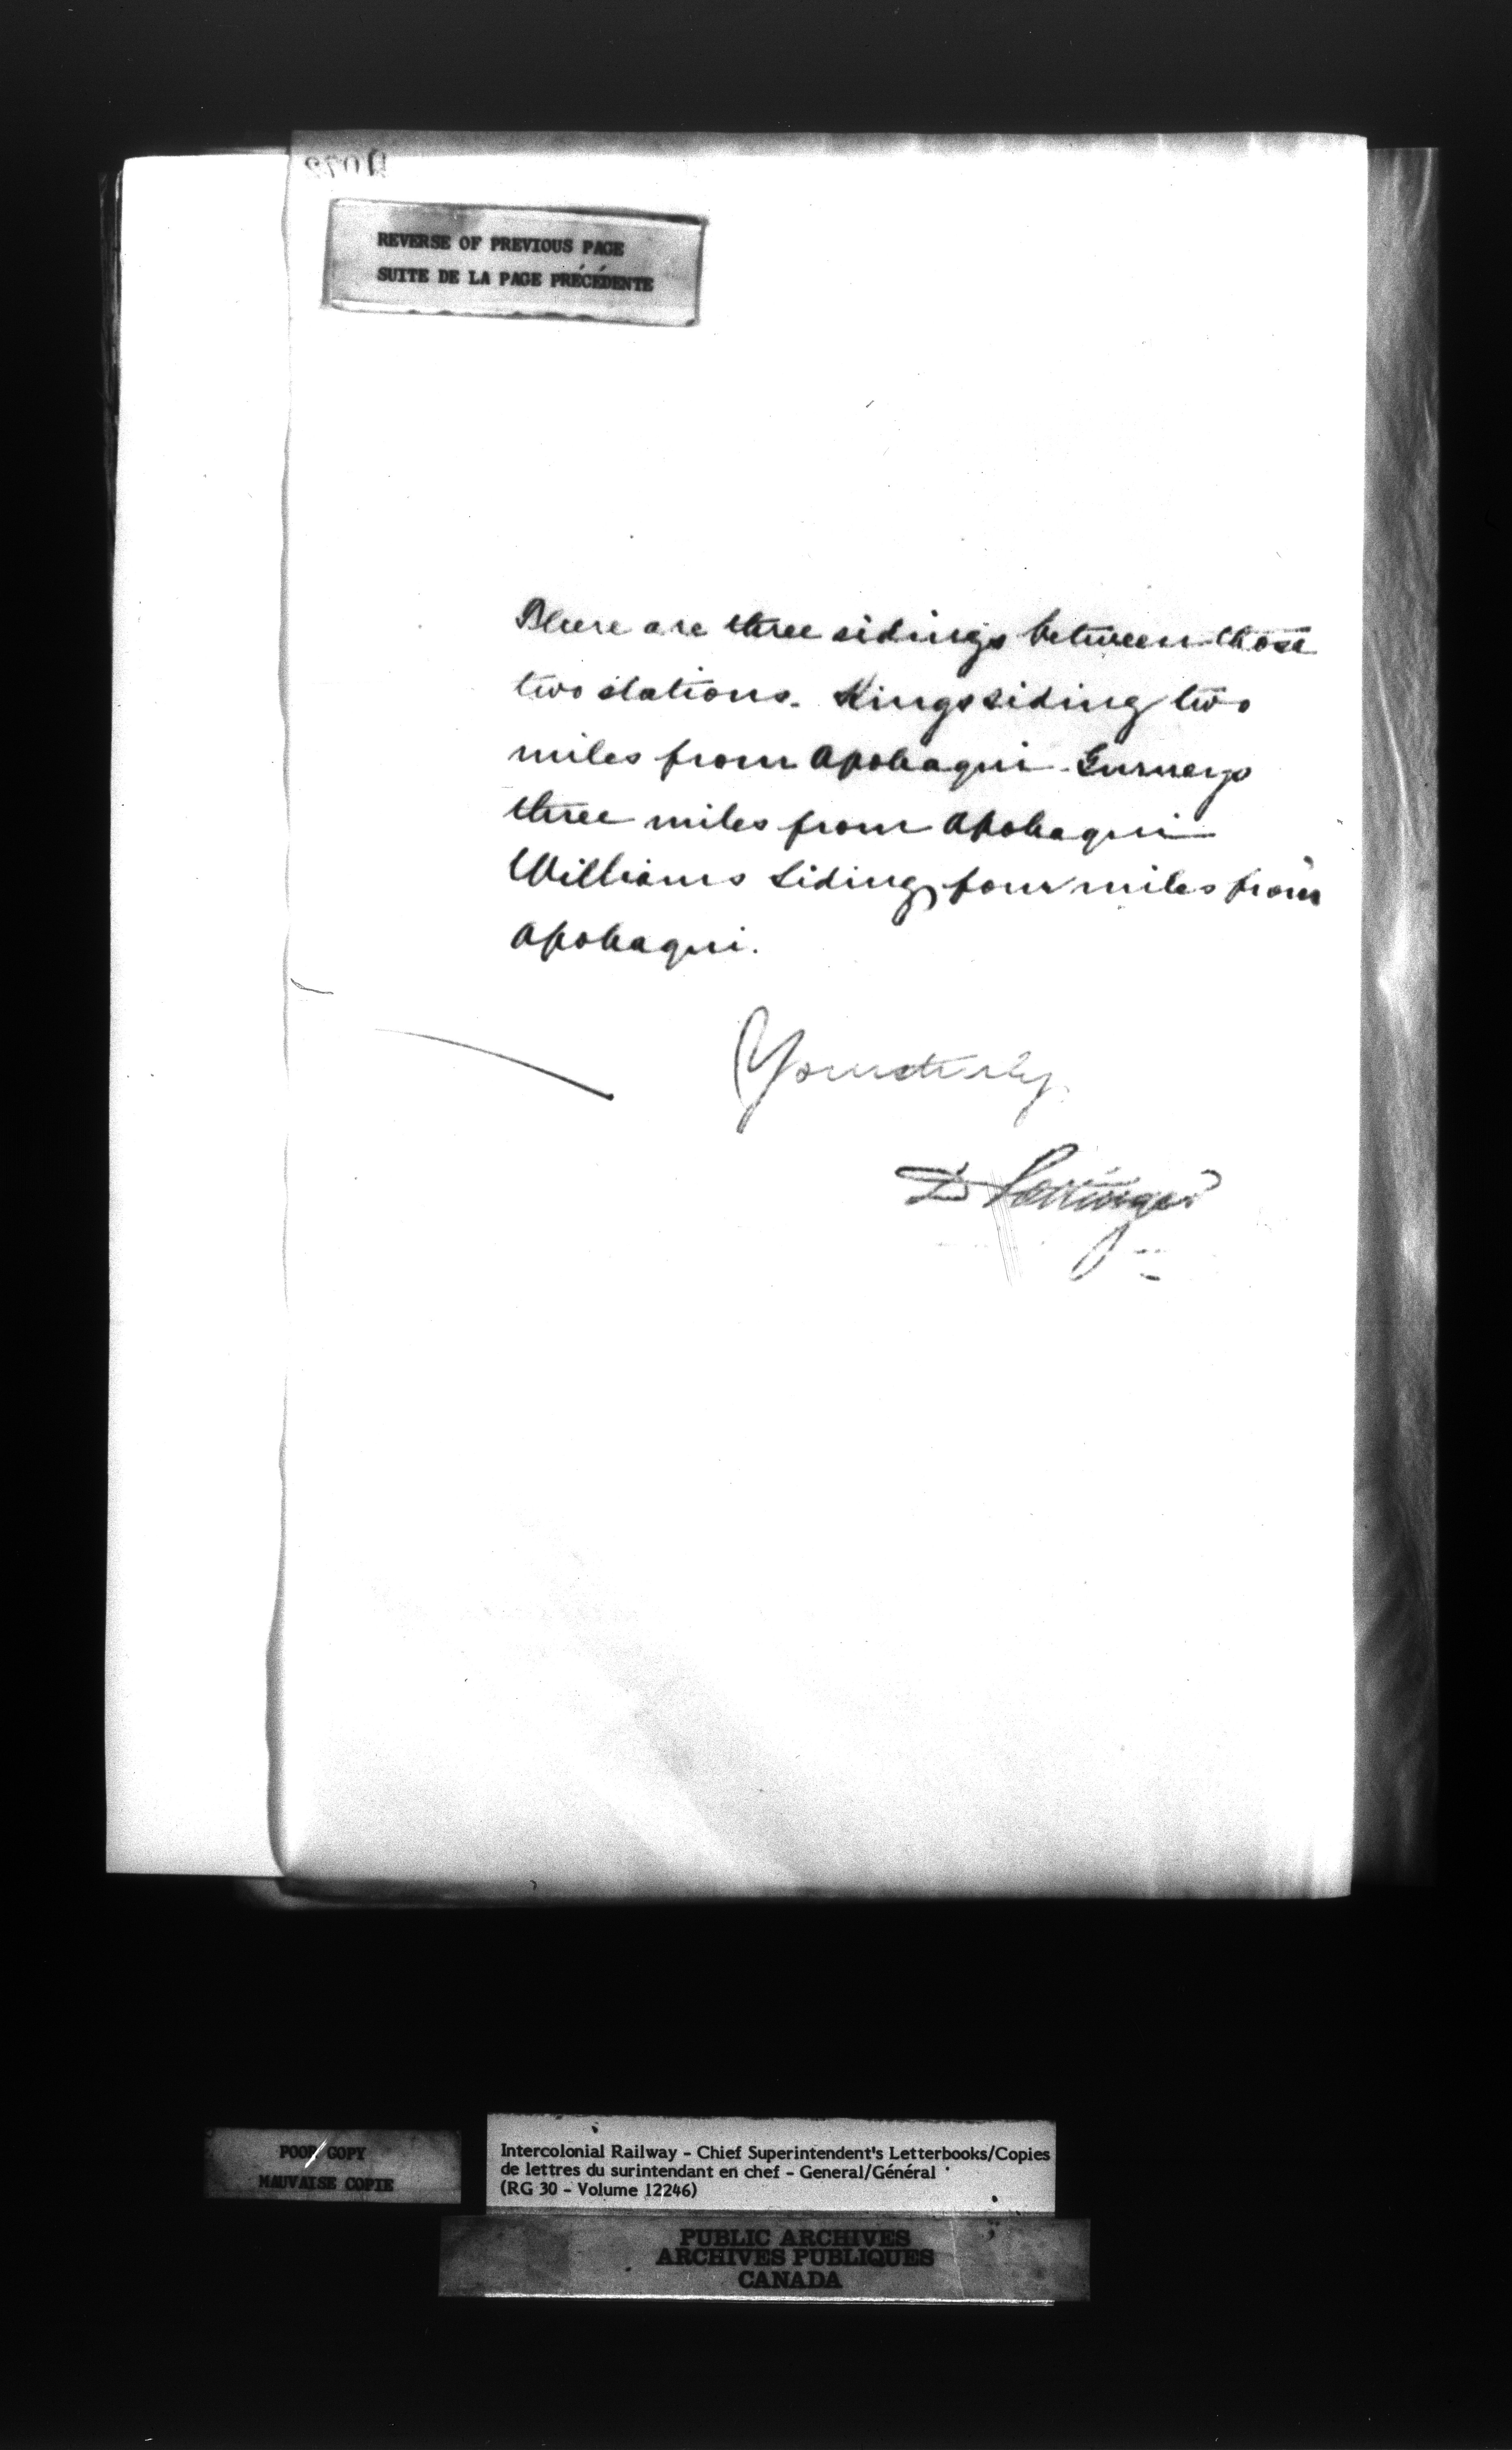 REVERSE OF PREVIOUS PAGE
SUITE DE LA PAGE PRÉCÉDENTE
There are three sidings between those
two stations. Kings siding two
miles from Apohaqui - Gurneys
three miles from Apohaqui
Williams Siding, four miles from
Apohaqui.
Yours truly
D Pottinger
POOR COPY
MAUVAISE COPIE
Intercolonial Railway - Chief Superintendent's Letterbooks/Copies
de lettres du surintendant en chef - General/Général
(RG 30 - Volume 12246)
PUBLIC ARCHIVES
ARCHIVES PUBLIQUES
CANADA